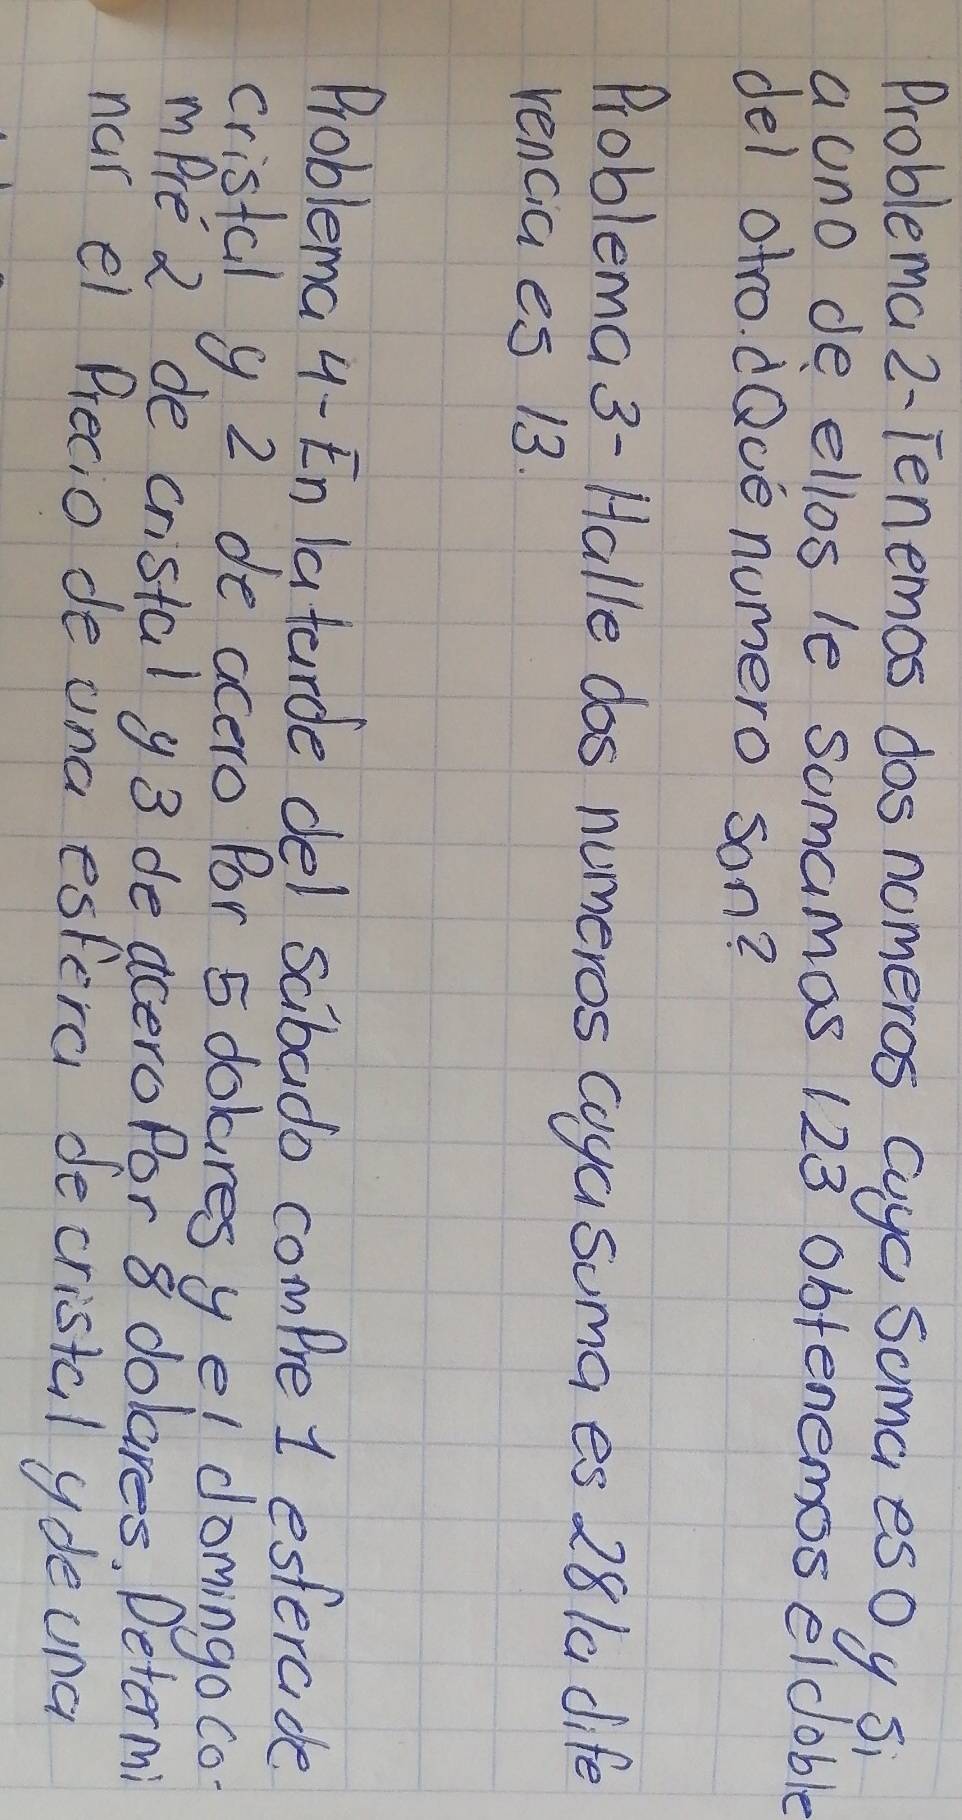 Problema 2-Tenemos dos numeros cuya suma es 0 y si
a uno de ellos le sumamos 123 obtenemos el doble
del otro. ¿Qué numero son?
Problema 3- Halle dos numeros cuya suma es 28 la dife
rencia es 13.
Problema 4- En la tarde del sábado compre 1 esfera de
cristal y 2 de acero Por 5 dolares y el domingo co-
mpré 2 de cristal y 3 de acero Por 8 dolares. Determi
nar el Precio de una esfera de cristal y de una